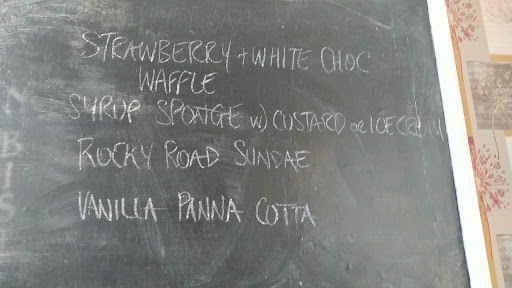 STRAWBERRY + WHITE CHOC
WAFFLE
SYRUP SPONGE w) CUSTARD or ICE CREAM
ROCKY ROAD SUNDAE
VANILLA PANNA COTTA